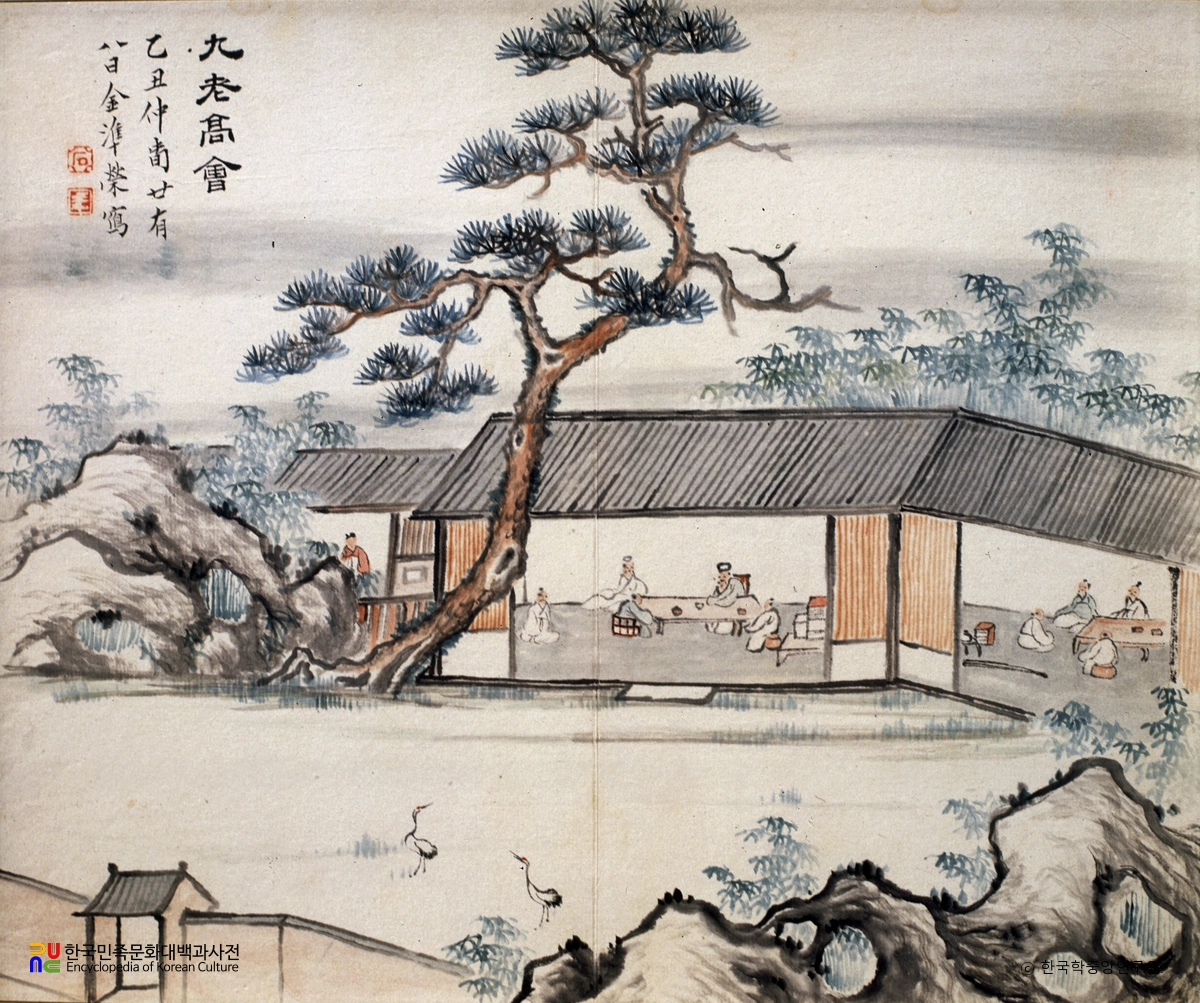 九老髙會
乙丑仲旾廿有
八日金準榮寫
한국민족문화대백과사전
Encyclopedia of Korean Culture
© 한국학중앙연구원